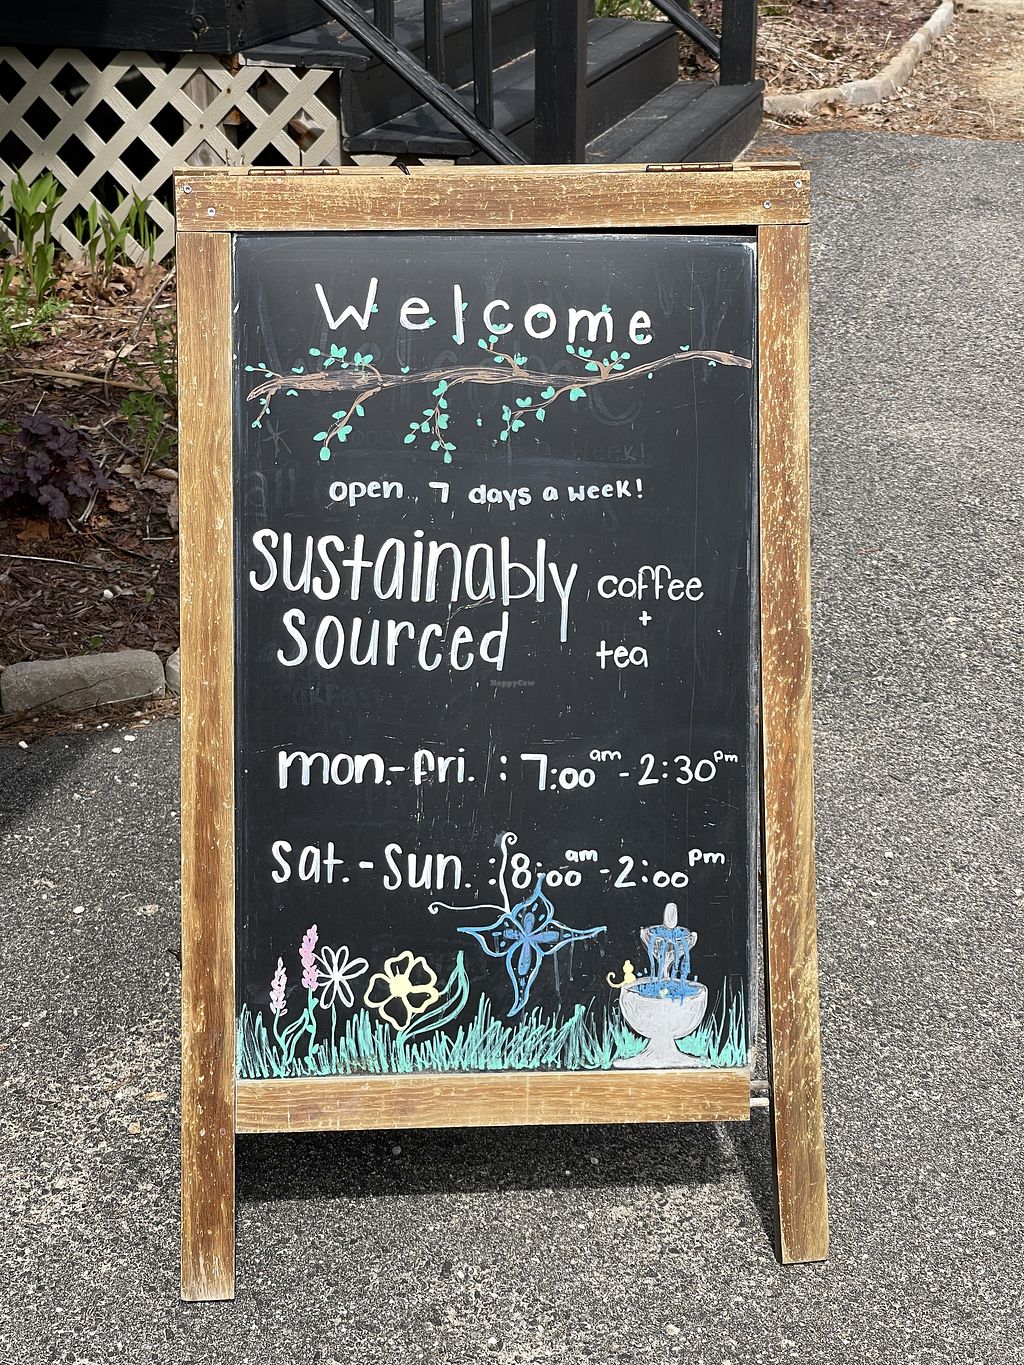 Welcome
open 7 days a week!
sustainably coffee
+
sourced tea
HappyCow
mon.-fri. : 7:00am - 2:30pm
Sat.-Sun. : 8:00am - 2:00pm